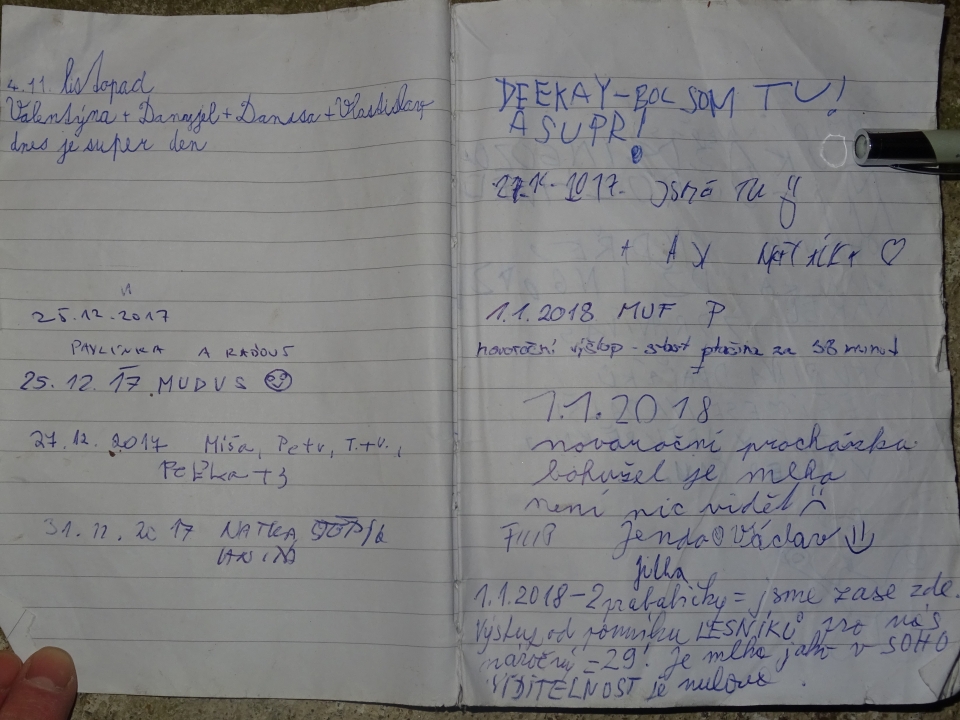 4.11. listopad
Valentýna + Danyjel + Danusa + Vlastislav
dnes je super den
25.12.2017
PAVLÍNKA A RADOUŠ
25.12.17 MUDUS
27.12.2017 Míša, Petr, T.+V.,
31. 2017 NATKA,
DEEKAY-BOL SOM TU!
A SUPR!
2017. JSME TU
+ A
1.1.2018 MUF P
novoroční výstup - start plošina za 38 minut
1.1.2018
novoroční procházka
bohužel je mlha
není nic vidět
FILIP Jenda Václav
Jitka
1.1.2018-2 prababičky = jsme zase zde.
Výstup od pomníku LESNÍKŮ pro nás
náročný = 29! je mlha jako v SOHO
VIDITELNOST je nulová.